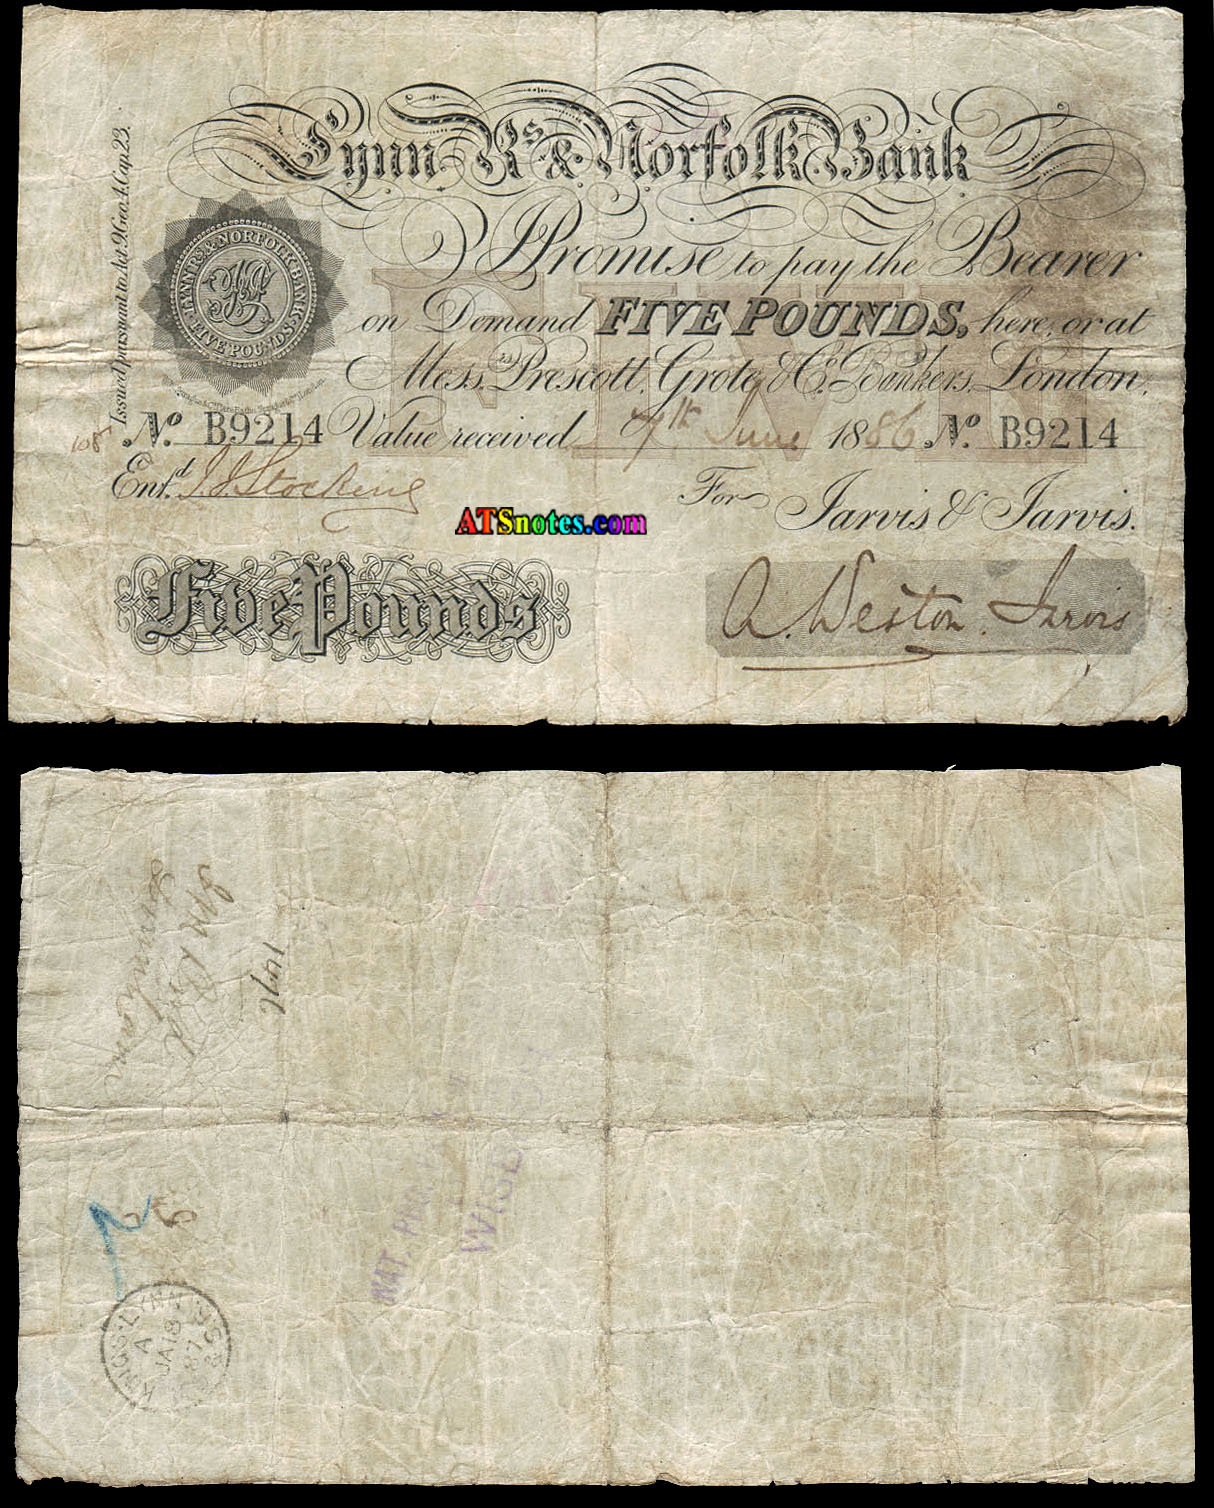 Lynn Rs & Norfolk Bank
Issued pursuant to Act 9 Geo. 4 Cap 23.
I Promise to pay the Bearer
on Demand FIVE POUNDS, here, or at
Messrs Prescott, Grote & Co. Bankers, London,
No. B9214 Value received 7th June 1886 No. B9214
Entd. J. J. Stocking
For Jarvis & Jarvis.
LYNN Rs & NORFOLK BANK
FIVE POUNDS
FIVE
ATSnotes.com
Five Pounds
A. Weston Jarvis
NAT. PRO
WISB
KINGS-LYNN
A
JA 18
87